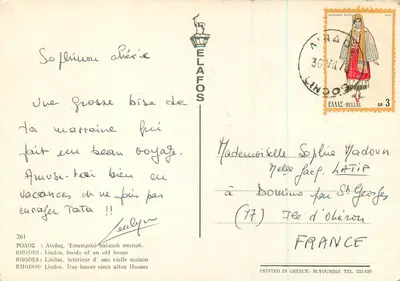 Sophinou Chérie
Une grosse bise de
ta marraine qui
fait un beau voyage.
Amuse-toi bien en
vacances et ne fais pas
enrager Tata !!
261
ΡΟΔΟΣ : Λίνδος. Ἐσωτερικό παλαιοῦ σπιτιοῦ.
RHODES: Lindos. Inside of an old house
RHODES: Lindos. Intérieur d'une vieille maison
RHODOS: Lindos. Das Innere eines alten Hauses
ELAFOS
ΛΙΝΔΟ
ΕΛΛΑΣ-HELLAS ΔΡ 3
Mademoiselle Sophie Madoun
Jacq. LATIF
à Domino par St Georges
(17) Ile d'Oléron
FRANCE
PRINTED IN GREECE - M. TOUMBIS, TEL.